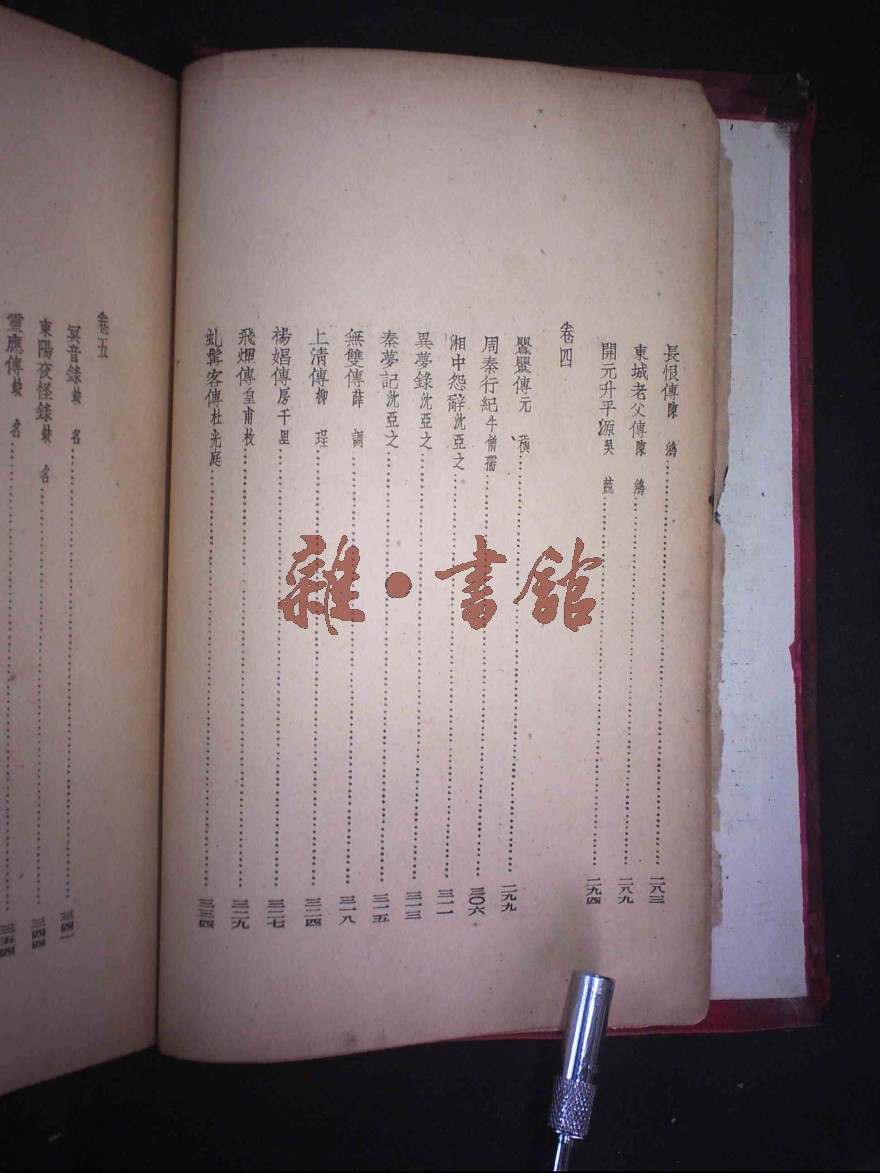 長恨傳 陳 鴻 二八三
東城老父傳 陳 鴻 二八九
開元升平源 吳 兢 二九四
卷四
鶯鶯傳 元 稹 二九九
周秦行紀 牛僧孺 三〇六
湘中怨辭 沈亞之 三一一
異夢錄 沈亞之 三一三
秦夢記 沈亞之 三一五
無雙傳 薛 調 三一八
上清傳 柳 珵 三二四
楊娼傳 房千里 三二七
飛煙傳 皇甫枚 三二九
虬髯客傳 杜光庭 三三四
卷五
冥音錄 缺 名 三四一
東陽夜怪錄 缺 名 三四四
靈應傳 缺 名 三五四
雜·書館